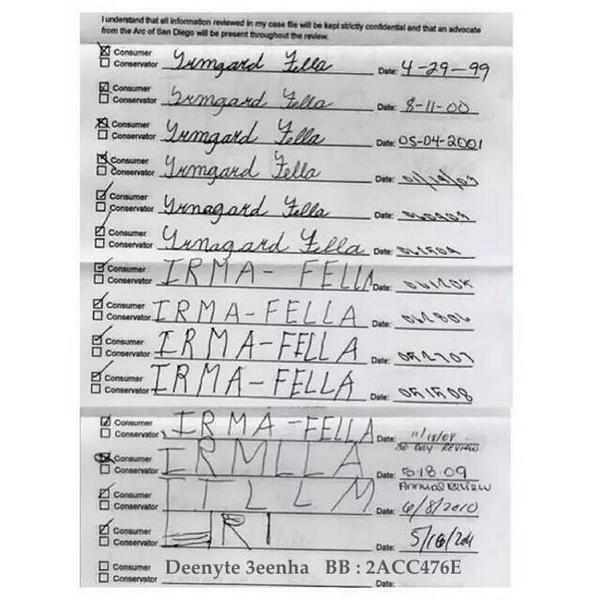 I understand that all information reviewed in my case file will be kept strictly confidential and that an advocate
from the Arc of San Diego will be present throughout the review.
Consumer
Conservator Irmgard Fella Date: 4-29-99
Consumer
Conservator Irmgard Fella Date: 8-11-00
Consumer
Conservator Irmgard Fella Date: 05-04-2001
Consumer
Conservator Irmgard Fella Date: 01/19/03
Consumer
Conservator Irmagard Fella Date:
Consumer
Conservator Irmagard Fella Date:
Consumer
Conservator IRMA- FELLA Date:
Consumer
Conservator IRMA-FELLA Date:
Consumer
Conservator IRMA-FELLA Date:
Consumer
Conservator IRMA-FELLA Date: 051508
Consumer
Conservator IRMA-FELLA Date: 11/18/08
30 DAY REVIEW
Consumer
Conservator IRMLLA Date: 5-18-09
Annual Review
Consumer
Conservator ITLLM Date: 6/8/2010
Consumer
Conservator Date: 5/18/2011
Consumer
Conservator Date:
Deenyte 3eenha BB : 2ACC476E